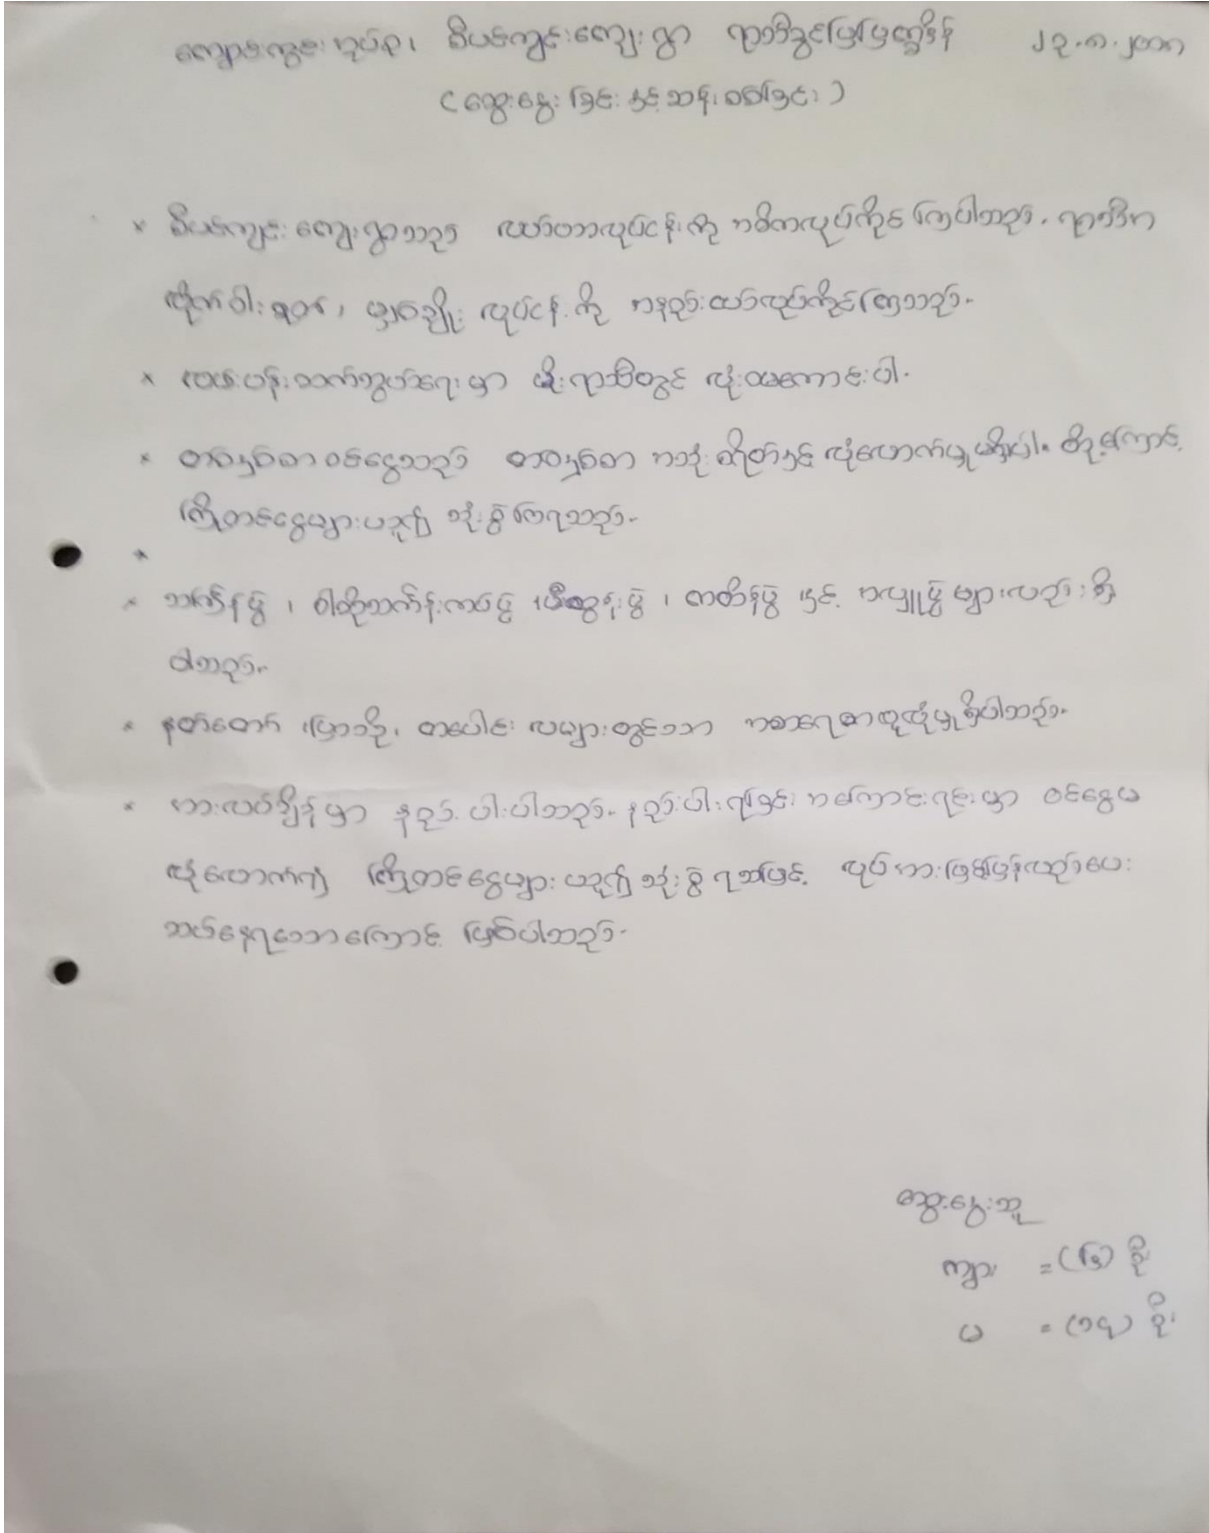 ကျောက်ကွင်းအုပ်စု၊ စီပင်ကျင်းကျေးရွာ ရာသီခွင်ပြပြက္ခဒိန် ၂၃.၈.၂၀၁၈
(ဆွေးနွေးခြင်းနှင့်ဆန်းစစ်ခြင်း)
* စီပင်ကျင်းကျေးရွာသည် လယ်ယာလုပ်ငန်းကို အဓိကလုပ်ကိုင်ကြပါသည်. ရာသီက
လိုက်ဝါးခုတ်၊ မျှစ်ချိုး လုပ်ငန်းကို အနည်းငယ်လုပ်ကိုင်ကြသည်.
* လမ်းပန်းဆက်သွယ်ရေးမှာ မိုးရာသီတွင် လုံးဝမကောင်းပါ.
* တစ်နှစ်တာဝင်ငွေသည် တစ်နှစ်တာ အသုံးစရိတ်နှင့် လုံလောက်မှုမရှိပါ. ထို့ကြောင့်
ကြိုတင်ငွေများယူ၍ သုံးစွဲကြရသည်.
*
* သင်္ကြန်ပွဲ၊ ဝါဆိုသင်္ကန်းကပ်ပွဲ၊ မီးထွန်းပွဲ၊ ကထိန်ပွဲနှင့် အလှူပွဲများလည်းရှိ
ပါသည်.
* နတ်တော်၊ ပြာသို၊ တပေါင်း လများတွင်သာ အစားရေစာဖူလုံမှုရှိပါသည်.
* အားလပ်ချိန်မှာ နည်းပါးပါသည်. နည်းပါးရခြင်းအကြောင်းရင်းမှာ ဝင်ငွေမ
လုံလောက်၍ ကြိုတင်ငွေများယူ၍သုံးစွဲရသဖြင့် လုပ်အားဖြင့်ပြန်လည်ပေး
ဆပ်နေရသောကြောင့် ဖြစ်ပါသည်.
ဆွေးနွေးသူ
ကျား = (၆) ဦး
မ = (၁၄) ဦး